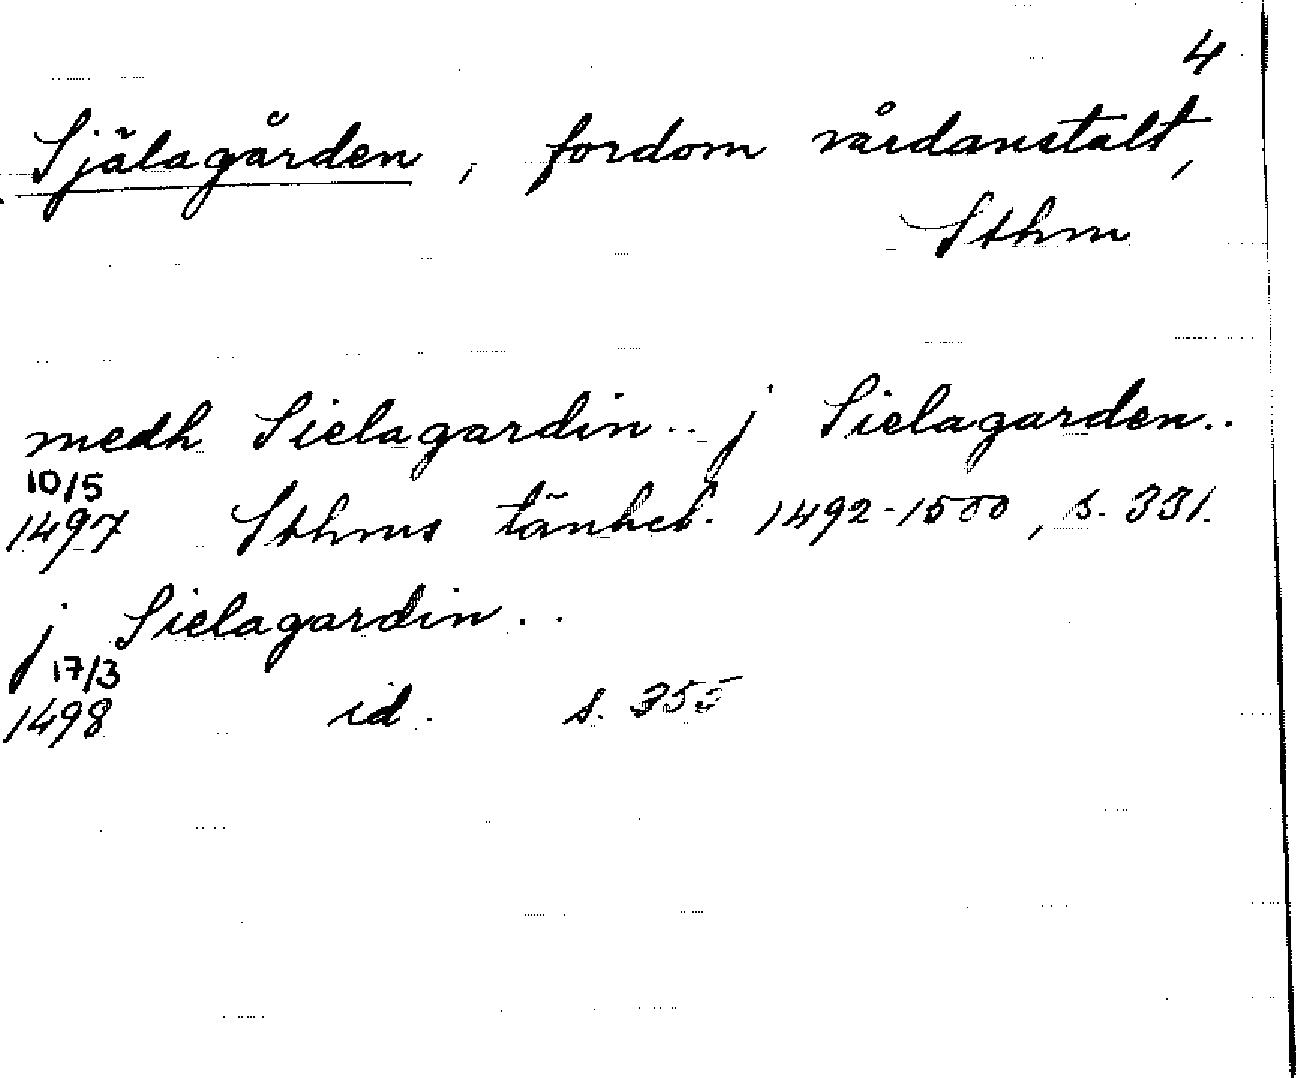 4
Själagården, fordom vårdanstalt,
Sthm
medh Sielagardin.. j Sielagarden..
10/5
1497 Sthms tänkeb. 1492-1500, s. 331.
j Sielagardin..
17/3
1498 id. s. 355